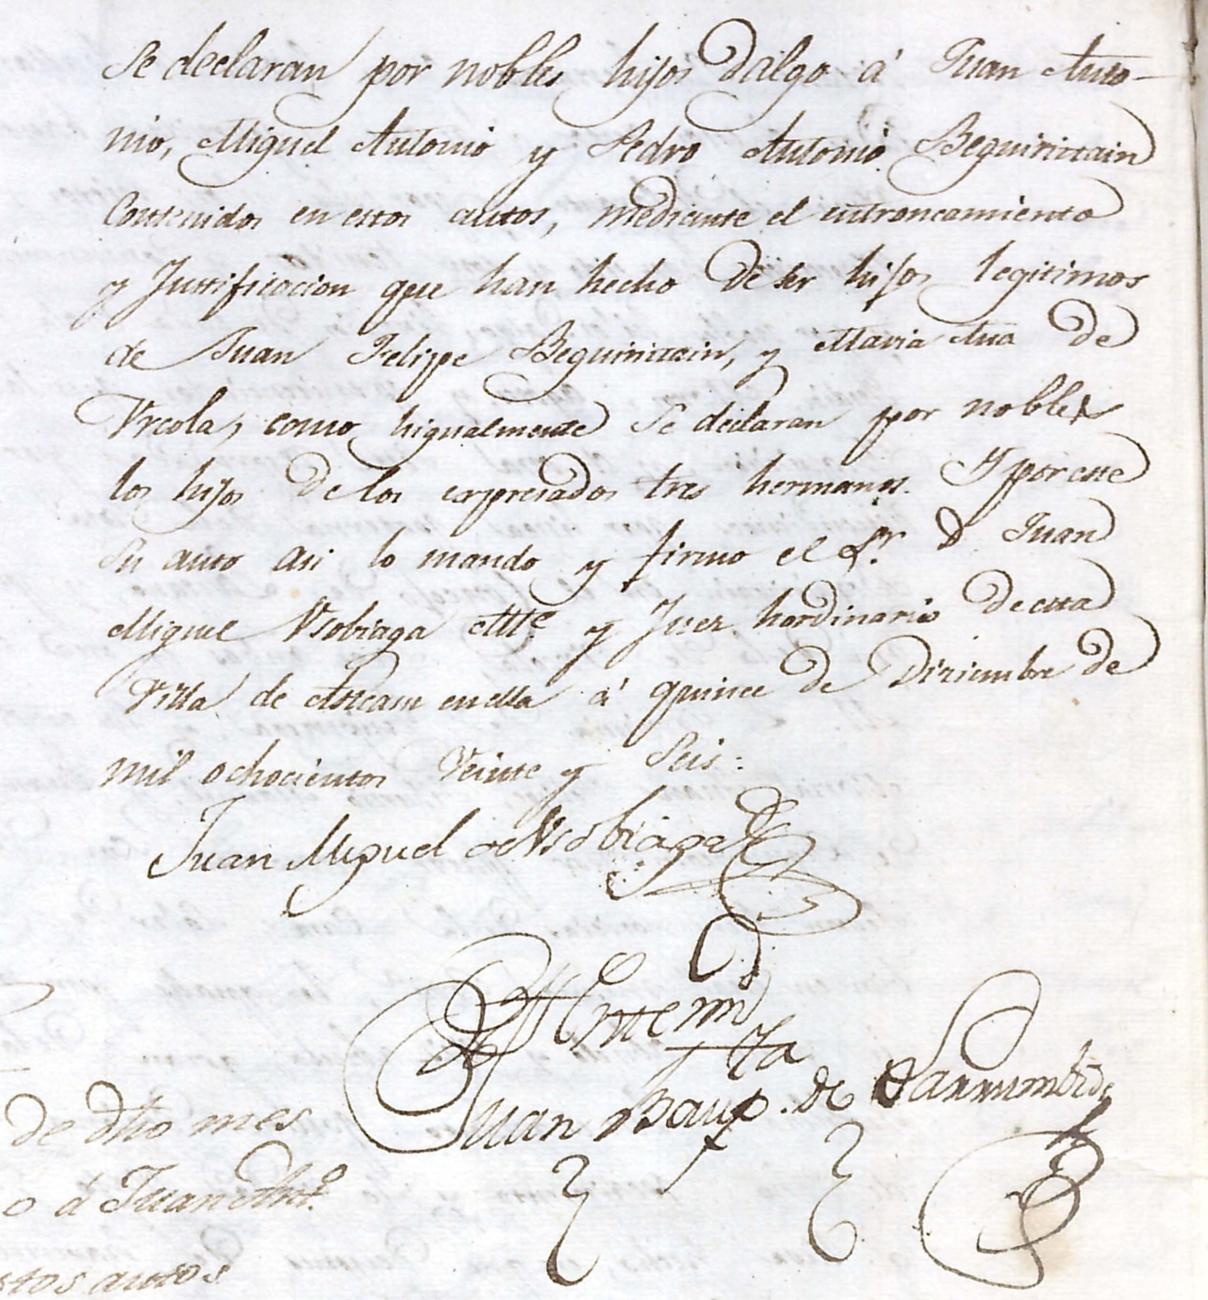 Se declaran por nobles hijos Dalgo á Juan Anto-
nio, Miguel Antonio y Pedro Antonio Beguiristain
Contenidos en estos autos, mediante el entroncamiento
y Justificacion que han hecho de ser hijos legitimos
de Juan Felipe Beguiristain, y Maria Ana de
Urcola, como higualmente Se declaran por nobles
los hijos de los expresados tres hermanos. Y por este
su auto asi lo mando y firmo el Sr. D Juan
Miguel Usobiaga Alle y Juez hordinario de esta
Villa de en ella á quince de Diziembre de
mil ochocientos Veinte y Seis:
Juan Miguel de Usobiaga
Ante mi
Juan Baup. de Larrumbide
de dho mes
o á Juan Anto.
stos autos